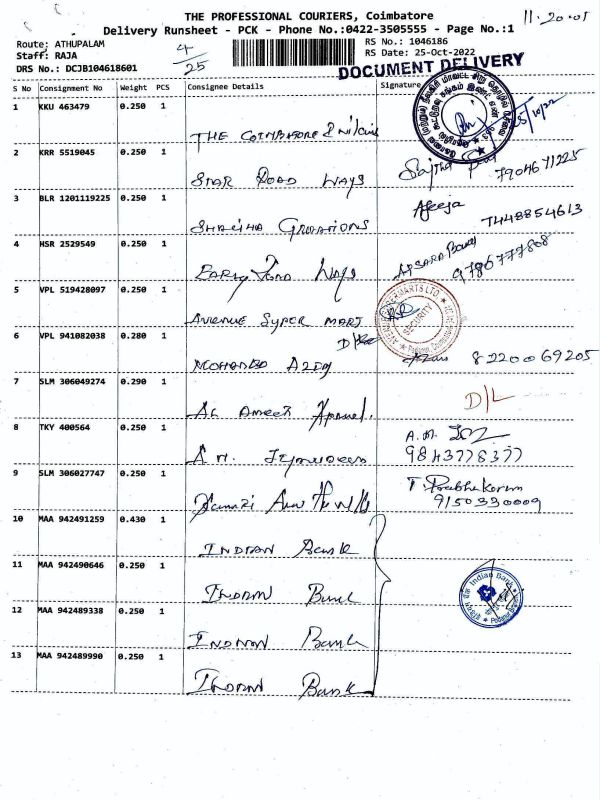 THE PROFESSIONAL COURIERS, Coimbatore
11-20-05
Delivery Runsheet - PCK - Phone No.:0422-3505555 - Page No.:1
Route: ATHUPALAM
4/25
RS No.: 1046186
Staff: RAJA
RS Date: 25-Oct-2022
DRS No.: DCJB104618601
DOCUMENT DELIVERY
S No Consignment No Weight PCS Consignee Details Signature
1 KKU 463479 0.250 1
THE COIMBATORE
2 KRR 5519045 0.250 1
STAR ROAD WAYS
7904671225
3 BLR 1201119225 0.250 1
Afeeja
7448854613
4 HSR 2529549 0.250 1
WAYS
9786777808
5 VPL 519428097 0.250 1
AVENUE SUPER MART
SECURITY
6 VPL 941082038 0.280 1
8220069205
7 SLM 306049274 0.290 1
AL AMEER
D/L
8 TKY 400564 0.250 1
A.M.
A.M.
9843778377
9 SLM 306027747 0.250 1
T. Prabhakaran
9150330009
10 MAA 942491259 0.430 1
INDIAN Bank
11 MAA 942490646 0.250 1
INDIAN Bank
Indian Bank
12 MAA 942489338 0.250 1
INDIAN Bank
13 MAA 942489990 0.250 1
INDIAN Bank